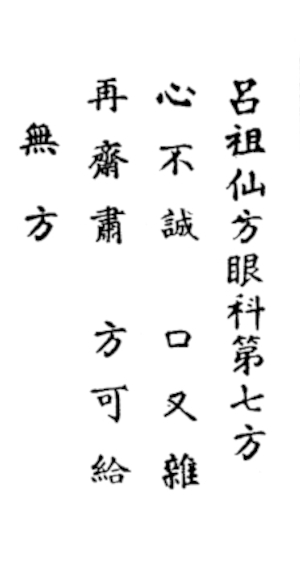 呂祖仙方眼科第七方
心不誠 口又雜
再齋肅 方可給
無方